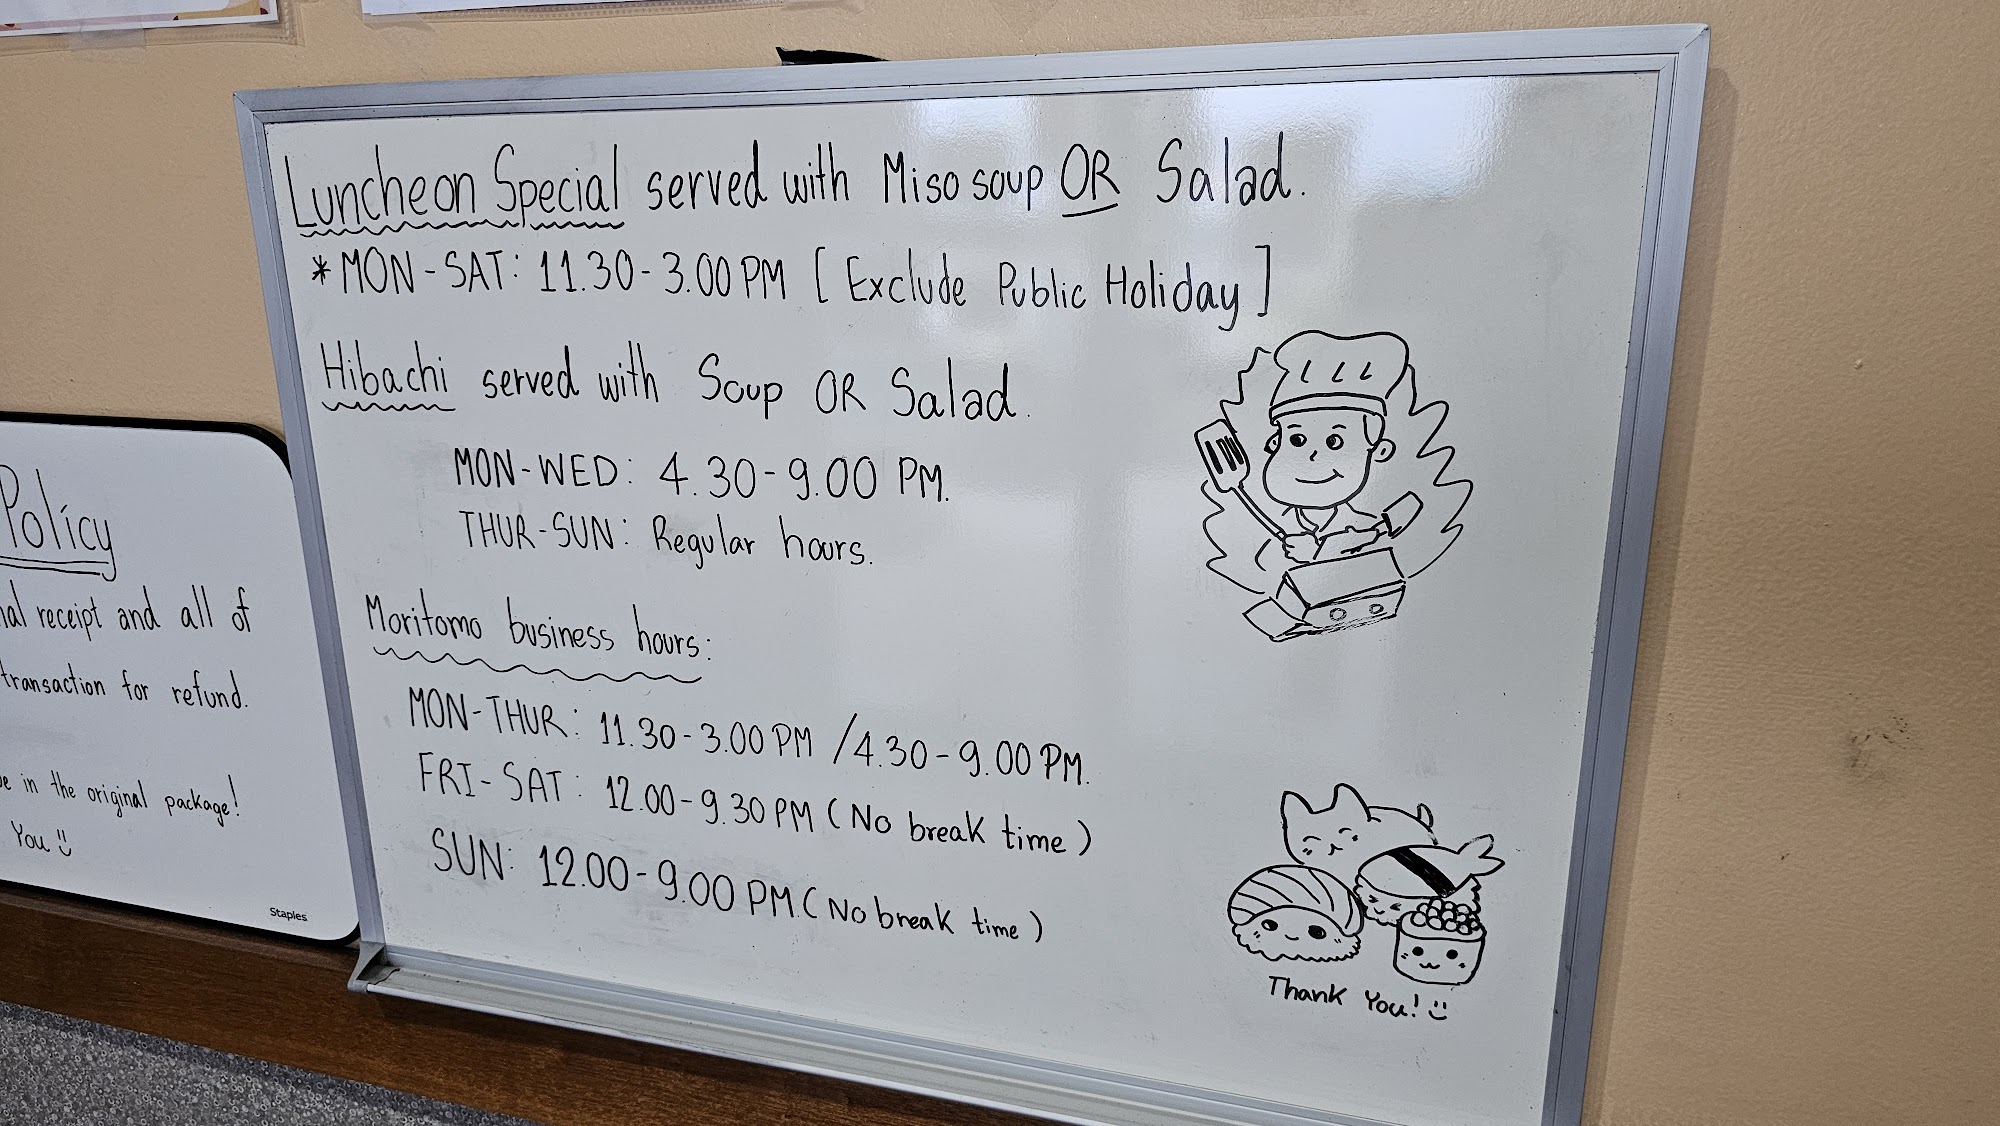 Luncheon Special served with Miso soup OR Salad.
*MON-SAT: 11.30-3.00 PM [Exclude Public Holiday]
Hibachi served with Soup OR Salad.
MON-WED: 4.30-9.00 PM.
THUR-SUN: Regular hours.
Moritomo business hours:
MON-THUR: 11.30-3.00 PM /4.30-9.00 PM.
FRI-SAT: 12.00-9.30 PM (No break time)
SUN: 12.00-9.00 PM.(No break time)
Thank You!
Policy
receipt and all of
transaction for refund.
in the original package!
You
Staples